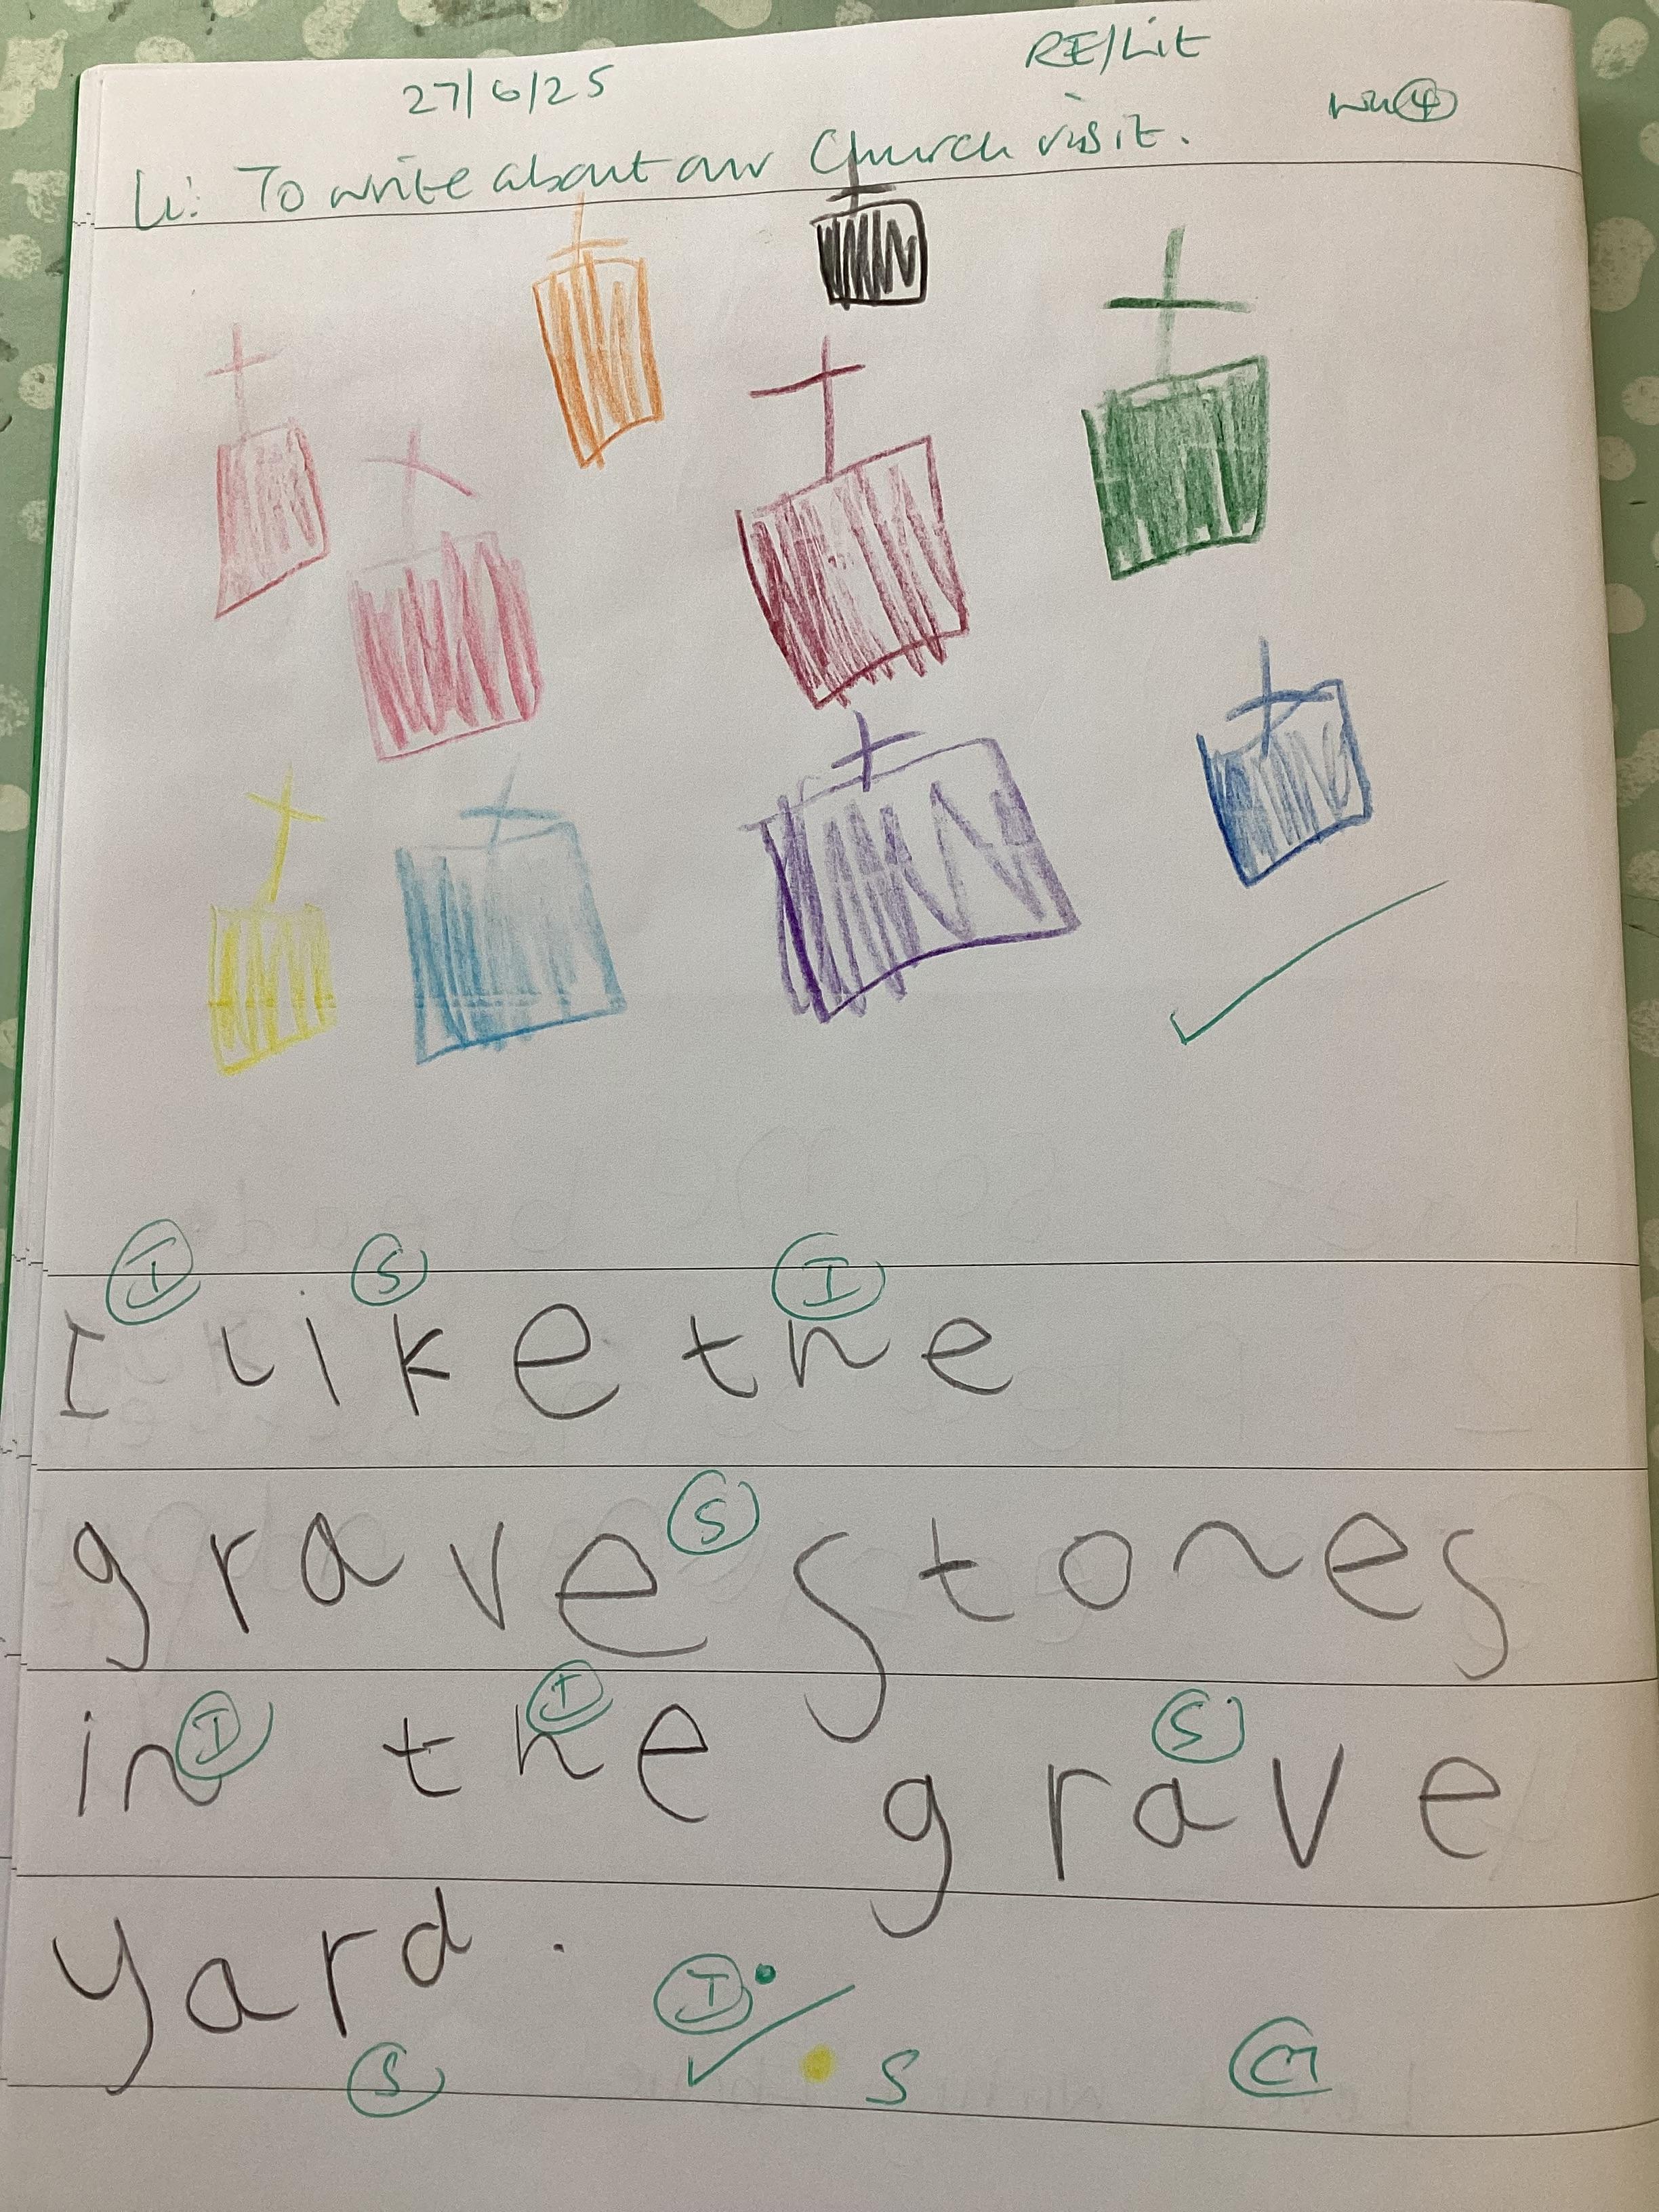 27/6/25 RE/Lit
Li: To write about our Church visit.
I I S I
I like the
S
gravestones
I I S
in the grave
yard.
I
S S